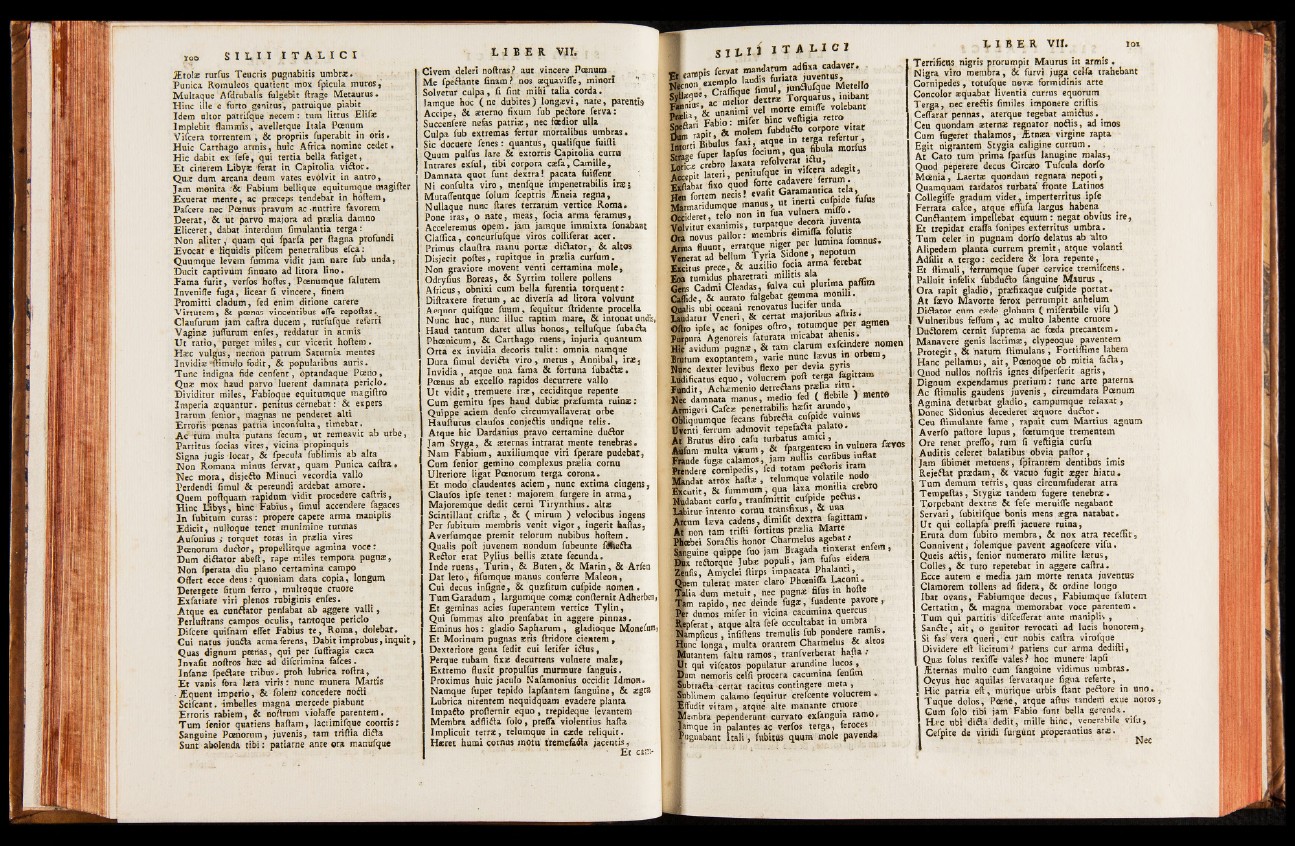 100 SILII ITALICI
Ætolæ rursus Teucris pugnabitis umbræ.
Punica Romuleos quatient mox spicula muros,
Multaque Asdrubalis fulgebit strage Metaurus.
Hinc ille e furto genitus, patruique piabit
Idem ultor patrisque necem: tum littus Elisæ
Implebit flammis, avelletque Itala Pœnum
Viscera torrentem, & propriis superabit in oris.
Huic Carthago armis, huic Africa nomine cedet.
Hic dabit ex sese, qui tertia bella fatiget,
Et cinerem Libyæ ferat in Capitolia victor.
Quæ dum arcana deum vates evolvit in antro,
Jam monita & Fabium bellique equitumque magister
Exuerat mente, ac præceps tendebat in hostem,
Pascere nec Pœnus pravum ac nutrire favorem
Deerat, & ut parvo majora ad prælia damno
Eliceret, dabat interdum simulantia terga:
Non aliter, quam qui sparsa per stagna profundi
Evocat e liquidis piscem penetralibus esca:
Quumque levem summa vidit jam nare sub unda,
Ducit captivum sinuato ad litora lino.
Fama furit, versos hostes, Pœnumque salutem
Invenisse fuga, liceat si vincere, finem
Promitti cladum, sed enim ditione carere
Virtutem, & pœnas vincentibus esse repostas.
Clausurum jam castra ducem, rursusque referri
Vaginæ jussurum enses, reddatur in armis
Ut ratio, purget miles, cur vicerit hostem.
Hæc vulgus, necnon patrum Saturnia mentes
Invidiæ stimulo fodit, & popularibus auris.
Tunc indigna fide censent, optandaque Pœno,
Quæ mox haud parvo luerent damnata periclo.
Dividitur miles, Fabioque equitumque magistro
Imperia æquantur. penitus cernebat: & expers
Irarum senior, magnas ne penderet alti
Erroris pœnas patria inconsulta, timebat.
Ac tum multa putans secum, ut remeavit ab urbe,
Partitus socias vires, vicina propinquis
Signa jugis locat, & specula sublimis ab alta
Non Romana minus servat, quam Punica castra.
Nec mora, disjecto Minuci vecordia vallo
Perdendi simul & pereundi ardebat amore.
Quem postquam rapidum vidit procedere castris,
Hinc Libys, hinc Fabius, simul accendere sagaces
In subitum curas: propere capere arma maniplis
Edicit, nulloque tenet munimine turmas
Ausonius; torquet totas in prælia vires
Pœnorum ductor, propellitque agmina voce:
Dum dictator abest, rape miles tempora pugnæ,
Non sperata diu plano certamina campo
Offert ecce deus: quoniam data copia, longum
Detergete situm ferro, multoque cruore
Exsatiate viri plenos rubiginis enses.
Atque ea cunctator pensabat ab aggere valli,
Perlustrans campos oculis, tantoque periclo
Discere quisnam esset Fabius te, Roma, dolebat.
Cui natus juncta arma ferens, Dabit improbus, inquit,
Quas dignum pœnas, qui per suffragia cæca
Invasit nostros hæc ad discrimina fasces.
Insanæ spectate tribus. proh lubrica rostra,
Et vanis fora læta viris: nunc munera Martis
Æquent imperio, & solem concedere nocti
Sciscant. imbelles magna mercede piabunt
Erroris rabiem, & nostrum violasse parentem.
Tum senior quatiens hastam, lacrimisque coortis:
Sanguine Pœnorum, juvenis, tam tristia dicta
Sunt abolenda tibi: patiarne ante ora manusque
LIBER VII.
Civem deleri nostras? aut vincere Pœnum
Me spectante sinam? nos æquavisse, minori
Solvetur culpa, si sint mihi talia corda.
Iamque hoc (ne dubites) longævi, nate, parentis
Accipe, & æterno fixum sub pectore serva:
Succensere nefas patriæ, nec fœdior ulla
Culpa sub extremas fertur mortalibus umbras.
Sic docuere senes: quantus, qualisque fuisti
Quum pulsus lare & extorris Capitolia curru
Intrares exsul, tibi corpora cæsa, Camille,
Damnata quot sunt dextra! pacata fuissent
Ni consulta viro, mensque impenetrabilis iræ;
Mutassentque solum sceptris Æneia regna,
Nullaque nunc stares terrarum vertice Roma.
Pone iras, o nate, meas, socia arma feramus,
Acceleremus opem. jam jamque immixta sonabant
Classica, concursusque viros colliserat acer.
Primus claustra manu portæ dictator, & altos
Disjecit postes, rupitque in prælia cursum.
Non graviore movent venti certamina mole,
Odrysius Boreas, & Syrtim tollere pollens
Africus, obnixi cum bella furentia torquent:
Distraxere fretum, ac diversa ad litora volvunt
Aequor quisque suum, sequitur stridente procella,
Nunc huc, nunc illuc raptim mare, & intonat undis,
Haud tantum daret ullus honos, tellusque subacta
Phœnicum, & Carthago ruens, injuria quantum
Orta ex invidia decoris tulit: omnia namque
Dura simul devicta viro, metus, Annibal, iræ,
Invidia, atque una fama & fortuna subactæ.
Pœnus ab excelso rapidos decurrere vallo
Ut vidit, tremuere iræ, ceciditque repente
Cum gemitu spes haud dubiæ præsumta ruinæ:
Quippe aciem denso circumvallaverat orbe
Hausturus clausos conjectis undique telis.
Atque hic Dardanius pravo certamine ductor
Jam Styga, & æternas intrarat mente tenebras.
Nam Fabium, auxiliumque viri sperare pudebat,
Cum senior gemino complexus prælia cornu
Ulteriore ligat Pœnorum terga corona.
Et modo claudentes aciem, nunc extima cingens,
Clausos ipse tenet: majorem surgere in arma,
Majoremque dedit cerni Tirynthius. altæ
Scintillant cristæ, & (mirum) velocibus ingens
Per subitum membris venit vigor, ingerit hastas,
Aversumque premit telorum nubibus hostem.
Qualis post juvenem nondum subeunte senecta
Rector erat Pylius bellis ætate secunda.
Inde ruens, Turin, & Buten, & Marin, & Arsen
Dat leto, fisumque manus conferre Maleon,
Cui decus insigne, & quæsitum cuspide nomen.
Tum Garadum, largumque comæ consternit Adherben,
Et geminas acies superantem vertice Tylin,
Qui summas alto prensabat in aggere pinnas.
Eminus hos: gladio Sapharum, gladioque Monesum,
Et Morinum pugnas æris stridore cientem,
Dexteriore gena sedit cui letifer ictus,
Perque tubam fixæ decurrens vulnere malæ,
Extremo fluxit propulsus murmure sanguis.
Proximus huic jaculo Nasamonius occidit Idmon.
Namque super tepido lapsantem sanguine, & ægra
Lubrica nitentem nequidquam evadere planta
Impacto prosternit equo, trepideque levantem
Membra adflicta solo, pressa violentius hasta
Implicuit terræ, telumque in cæde reliquit.
Hæret humi cornus motu tremefacta jacentis,
Et cam-
SILII ITALICI
Et campis servat mandatum adfixa cadaver.
Necnon exemplo laudis furiata juventus,
Syllæque, Crassique simul, junctusque Metello
Furnius, ac melior dextræ Torquatus, inibant
Prælia, & unanimi vel morte emisse volebant
Spectari Fabio: miser hinc vestigia retro
Dum rapit, & molem subducto corpore vitat
Intorti Bibulus saxi, atque in terga refertur,
Strage super lapsus socium, qua fibula morsus
Loricæ crebro laxata resolverat ictu,
Accepit lateri, penitusque in viscera adegit,
Exstabat fixo quod forte cadavere ferrum.
Heu sortem necis! evasit Garamantica tela,
Marmaridumque manus, ut inerti cuspide fusus
Occideret, telo non in sua vulnera misso.
Volvitur exanimis, turpatque decora juventa
Ora novus pallor: membris dimissa solutis
Arma fluunt, erratque niger per lumina somnus.
Venerat ad bellum Tyria Sidone, nepotum
Excitus prece, & auxilio socia arma ferebat
Eoa tumidus pharetrati militis ala
Gens Cadmi Cleadas, fulva cui plurima passim
Casside, & aurato fulgebat gemma monili.
Qualis ubi oceani renovatus lucifer unda
Laudatur Veneri, & certat majoribus astris.
Ostro ipse, ac sonipes ostro, totumque per agmen
Purpura Agenoreis saturata micabat ahenis.
Hic avidum pugnæ, & tam clarum exscindere nomen
Brutum exoptantem, varie nunc lævus in orbem,
Nunc dexter levibus flexo per devia gyris
Ludificatus equo, volucrem post terga sagittam
Fundit, Achæmenio detrectans prælia ritu.
Nec damnata manus, medio sed (flebile) mento
Armigeri Cascæ penetrabilis hæsit arundo,
Obliquumque secans subrecta cuspide vulnus
Uventi ferrum admovit tepefacta palato.
At Brutus diro casu turbatus amici,
Ausum multa virum, & spargentem in vulnera sævos
Fraude fugæ calamos, jam nullis cursibus instat
Prendere cornipedis, sed totam pectoris iram
Mandat atrox hastæ, telumque volatile nodo
Excutit, & summum, qua laxa monilia crebro
Nudabant cursu, transmittit cuspide pectus.
Labitur intento cornu transfixus, & una
Arcum læva cadens, dimisit dextra sagittam.
At non tam tristi sortitus prælia Marte
Phœbei Soractis honor Charmelus agebat:
Sanguine quippe suo jam Bragada tinxerat ensem,
Dux rectorque Jubæ populi, jam fusus eidem
Zeusis, Amyclei stirps impacata Phalanti,
Quem tulerat mater claro Phœnissa Laconi.
Talia dum metuit, nec pugnæ fisus in hoste
Tam rapido, nec deinde fugæ, suadente pavore,
Per dumos miser in vicina cacumina quercus
Repserat, atque alta sese occultabat in umbra
Hampsicus, insistens tremulis sub pondere ramis.
Hunc longa, multa orantem Charmelus & altos
Mutantem saltu ramos, transverberat hasta:
Ut qui viscatos populatur arundine lucos,
Dum nemoris celsi procera cacumina sensim
Subtracta certat tacitus contingere meta,
Sublimem calamo sequitur crescente volucrem.
Effudit vitam, atque alte manante cruore
Membra pependerunt curvato exsanguia ramo.
Jamque in palantes ac versos terga, feroces
Pugnabant Itali, subitus quum mole pavenda
LIBER VII. 101
Terrificus nigris prorumpit Maurus in armis.
Nigra viro membra, & furvi juga celsa trahebant
Cornipedes, totusque novæ formidinis arte
Concolor æquabat liventia currus equorum
Terga, nec erectis similes imponere cristis
Cessarat pennas, aterque tegebat amictus.
Ceu quondam æternæ regnator noctis, ad imos
Cum fugeret thalamos, Ætnæa virgine rapta
Egit nigrantem Stygia caligine currum.
At Cato tum prima sparsus lanugine malas,
Quod peperere decus Circæo Tuscula dorso
Mœnia, Laertæ quondam regnata nepoti,
Quamquam tardatos turbata fronte Latinos
Collegisse gradum videt, imperterritus ipse
Ferrata calce, atque effusa largus habena
Cunctantem impellebat equum: negat obvius ire,
Et trepidat crassa sonipes exterritus umbra.
Tum celer in pugnam dorso delatus ab alto
Alipedem planta currum premit, atque volanti
Adsilit a tergo: cecidere & lora repente,
Et stimuli, ferrumque super cervice tremiscens.
Palluit infelix subducto sanguine Maurus.
Ora rapit gladio, præfixaque cuspide portat.
At sævo Mavorte ferox perrumpit anhelum
Dictator enim cæde globum (miserabile visu)
Vulneribus fessum, ac multo labente cruore
Ductorem cernit suprema ac fœda precantem.
Manavere genis lacrimæ, clypeoque paventem
Protegit, & natum stimulans, Fortissime labem
Hanc pellamus, ait, Pœnoque ob mitia facta,
Quod nullos nostris ignes disperserit agris,
Dignum expendamus pretium: tunc arte paterna
Ac stimulis gaudens juvenis, circumdata Pœnum
Agmina deturbat gladio, campumque relaxat,
Donec Sidonius decederet æquore ductor.
Ceu stimulante fame, rapuit cum Martius agnum
Averso pastore lupus, fœtumque trementem
Ore tenet presso, tum si vestigia cursu
Auditis celeret balatibus obvia pastor,
Jam sibimet metuens, spirantem dentibus imis
Rejectat prædam, & vacuo fugit æger hiatu.
Tum demum tetris, quas circumfuderat atra
Tempestas, Stygiæ tandem fugere tenebræ.
Torpebant dextræ & sese meruisse negabant
Servari, subitisque bonis mens ægra natabat.
Ut qui collapsa pressi jacuere ruina,
Eruta dum subito membra, & nox atra recessit,
Connivent, solemque pavent agnoscere visu.
Queis actis, senior numerato milite lætus,
Colles, & tuto repetebat in aggere castra.
Ecce autem e media jam morte renata juventus
Clamorem tollens ad sidera, & ordine longo
Ibat ovans, Fabiumque decus, Fabiumque salutem
Certatim, & magna memorabat voce parentem.
Tum qui partitis discesserat ante maniplis,
Sancte, ait, o genitor revocati ad lucis honorem,
Si fas vera queri, cur nobis castra virosque
Dividere est licitum? patiens cur arma dedisti,
Quæ solus rexisse vales? hoc munere lapsi
Æternas multo cum sanguine vidimus umbras.
Ocyus huc aquilas servataque signa referte,
Hic patria est, murique urbis stant pectore in uno.
Tuque dolos, Pœne, atque astus tandem exue notos,
Cum solo tibi jam Fabio sunt bella gerenda.
Hæc ubi dicta dedit, mille hinc, venerabile visu,
Cespite de viridi surgunt properantius aræ.
Nec